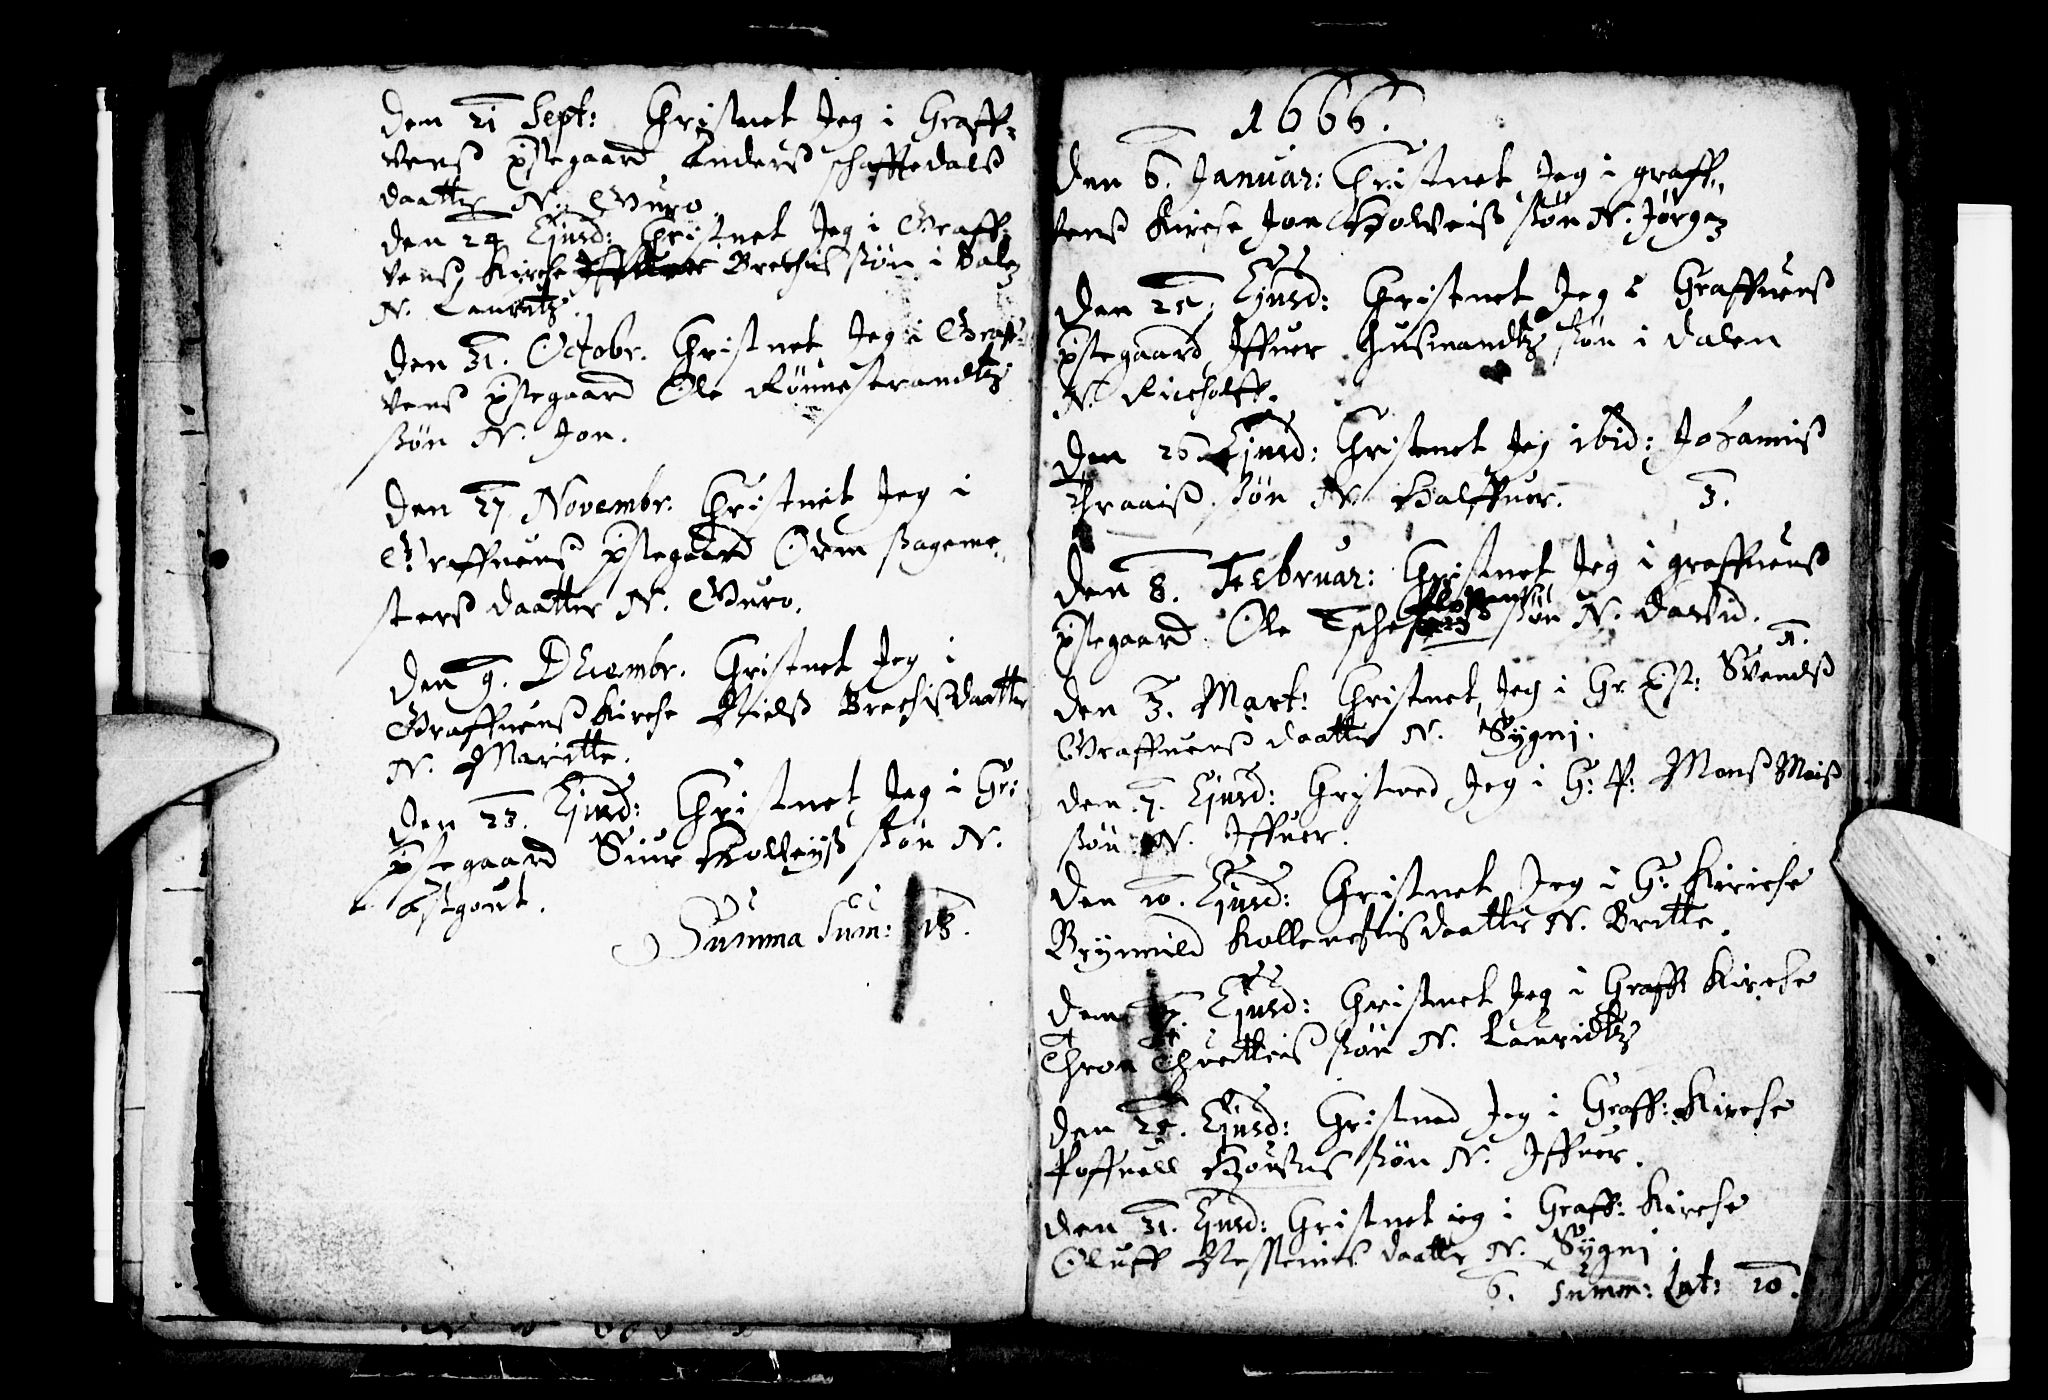 Den 21 Sept: Christnet Jeg i Graff-
vens pstegaard Anders schafftedals
daatter N. Guro
den 24 Ejusd: Christnet Jeg i Graff-
vens Kirche Brechis søn i Dalen
N. Lauritz.
Den 31. Octobr. Christnet Jeg i Graf-
vens pstegaard Ole Rønnestrandtz
søn N. Jon.
Den 27 Novembr. Christnet Jeg i
Graffvens pstegaard Orm sageme-
sters daatter N. Guro.
Den 9. Decembr. Christnet Jeg i
Graffuens Kirche Nielß Brechis daatter
N. Maritte.
Den 23. Ejusd: Christnet Jeg i Gr:
pstegaard Siur Holleys søn N.
Aszgout.
Summa Sum: 18.
1666.
Den 6. Januar: Christnet Jeg i graff-
vens Kirche Jon Holveis søn N. Jørgen
Den 25. Ejusd: Christnet Jeg i Graffuens
pstegaard Iffuer Husmandtz søn i Dalen
N.
Den 26. Ejusd: Christnet Jeg ibid: Johannis
Thraais søn N. Halffuer. 3.
Den 8. Februar: Christnet Jeg i graffuens
pstegaard Ole søn N. David.
1.
Den 3. Mart: Christnet Jeg i Gr. pst: Svends
Graffuens daatter N. Sygni.
den 7. Ejusd: Christned Jeg i G: P: Mons Meiß
søn N. Iffuer.
Den 10. Ejusd: Christnet Jeg i G: Kirche
Brynnild Kollenesis daatter N. Britte.
Den Ejusd: Christnet Jeg i Graff: Kirche
Thron Thuetteis søn N. Lauridtz
Den 25. Ejusd: Christned Jeg i Graff: Kirche
Poffuell søn N. Iffuer.
Den 31. Ejusd: Christnet ieg i Graff: Kirche
Oluff Nesseims daatter N. Sygni.
6. Summ: Lat: 10.